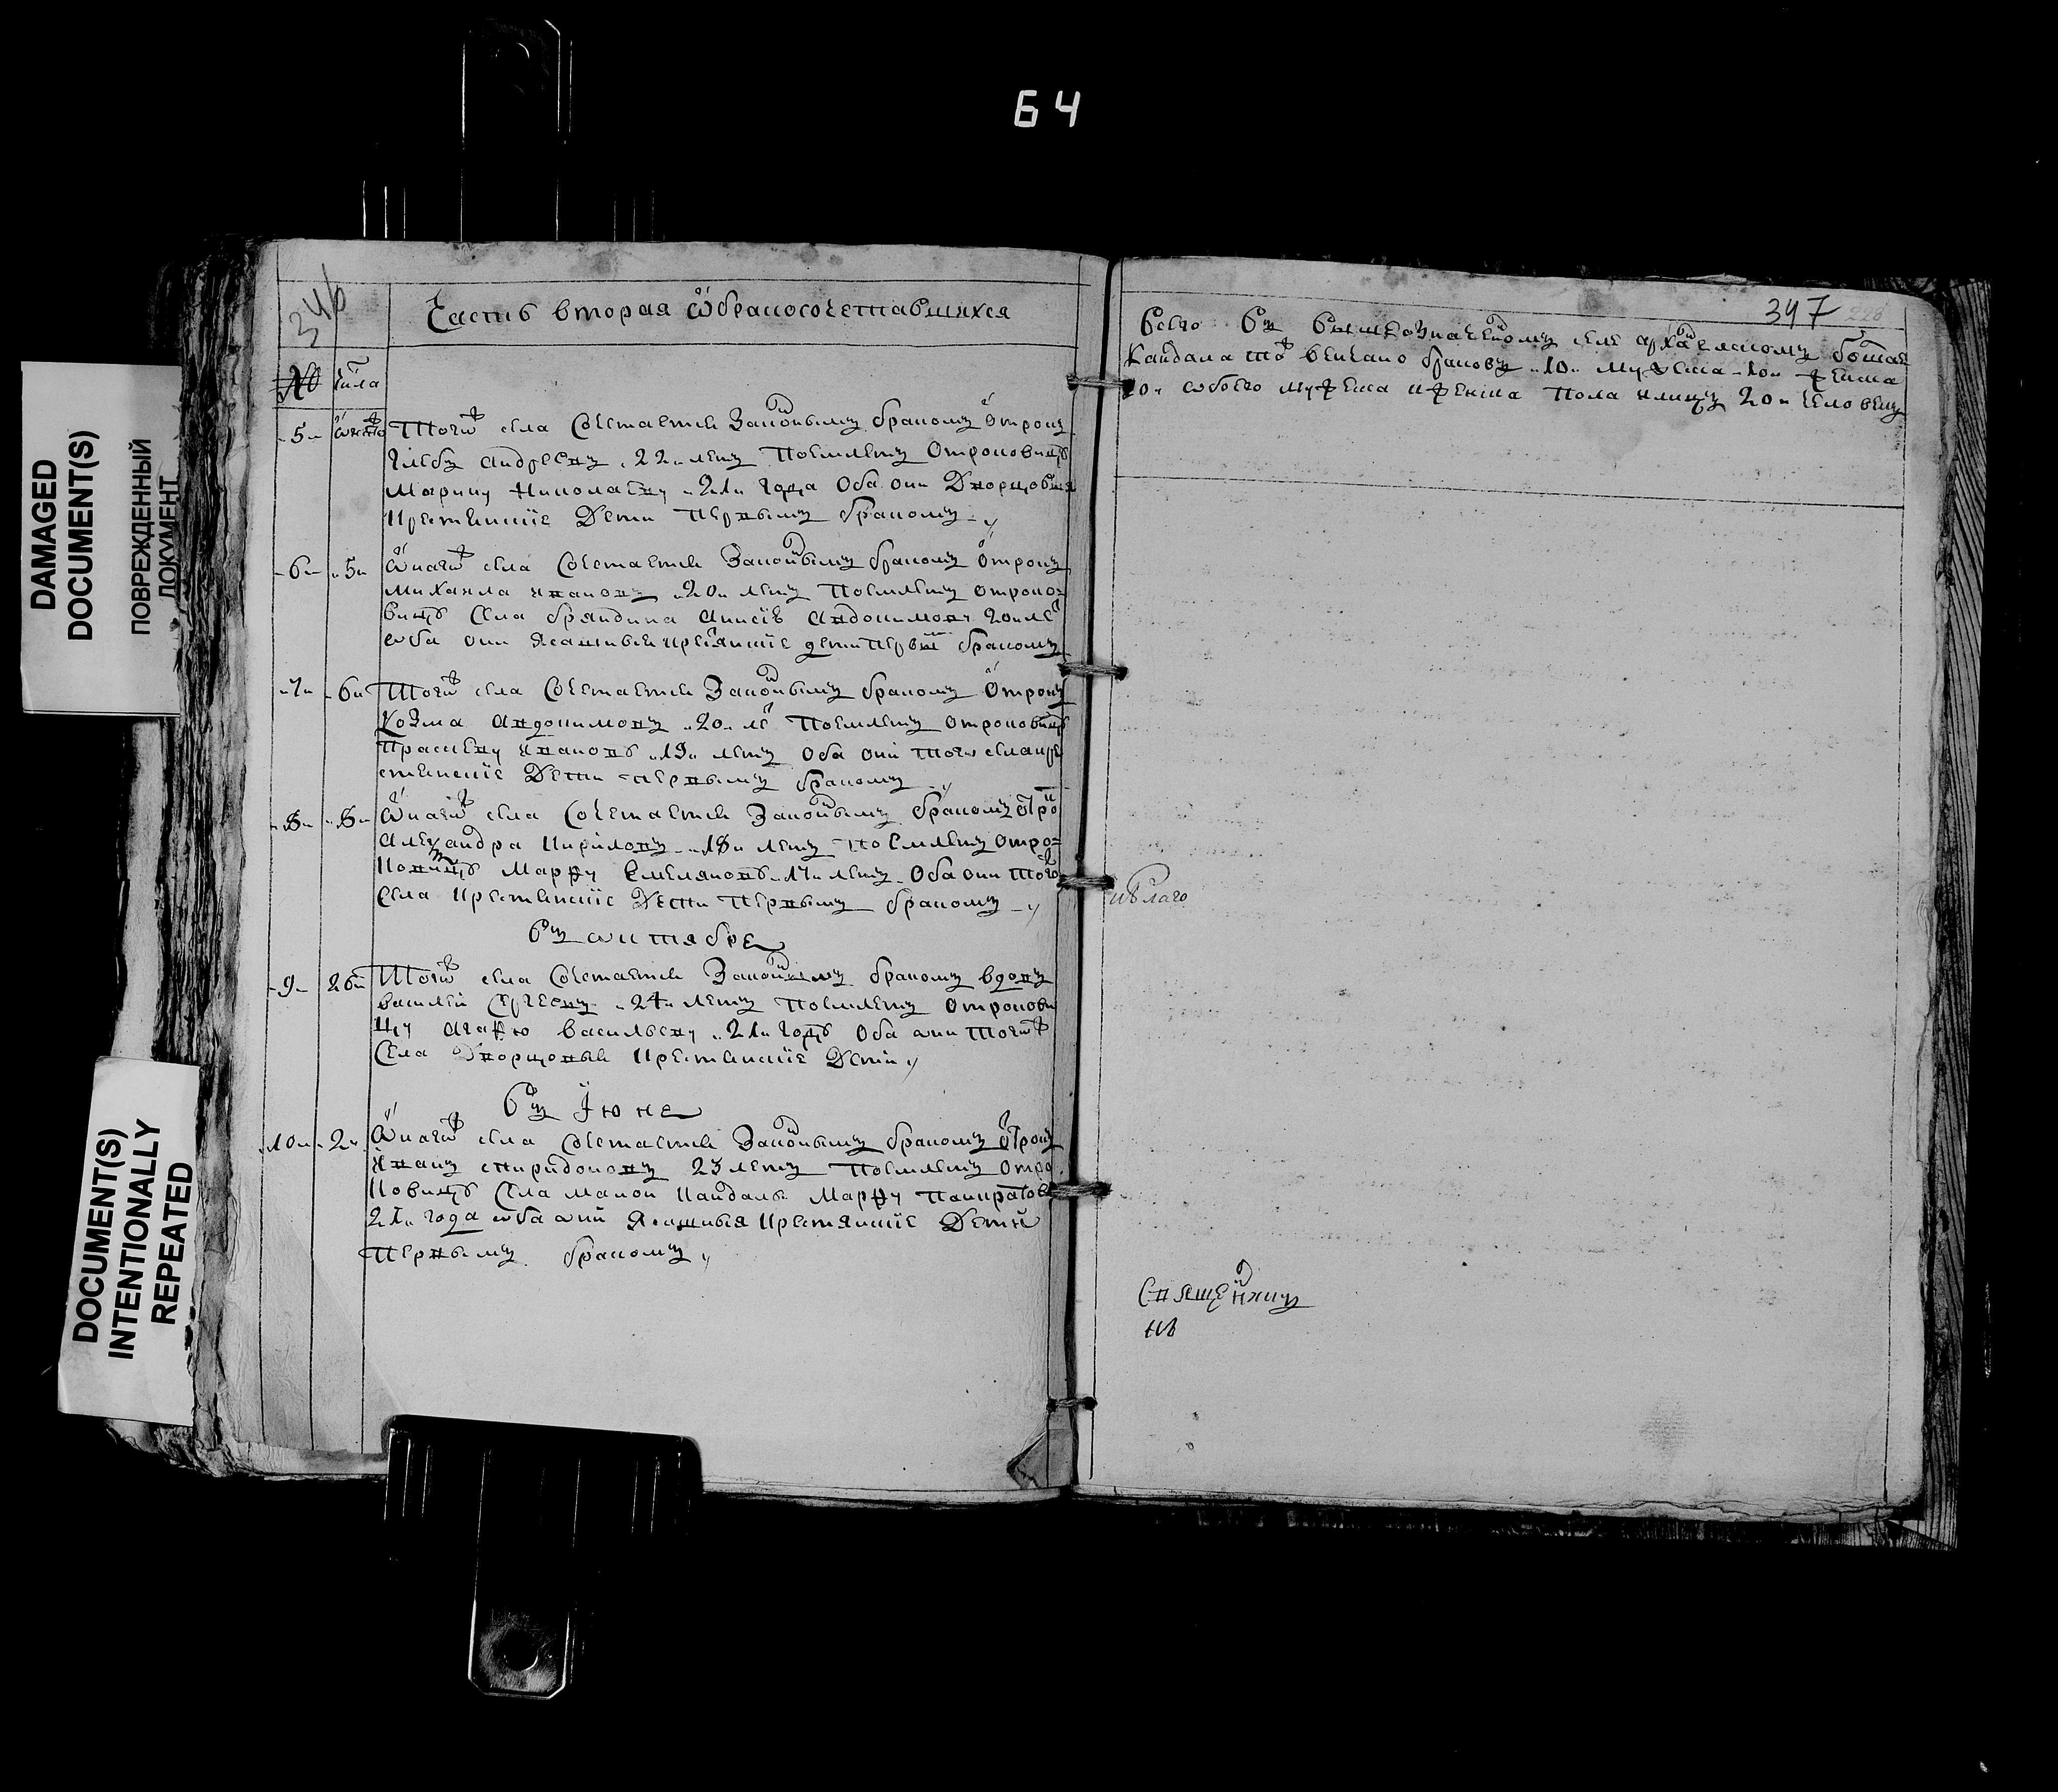 64
DAMAGED
DOCUMENT(S)
ПОВРЕЖДЕННЫЙ
ДОКУМЕНТ
DOCUMENT(S)
INTENTIONALLY
REPEATED
346
Часть вторая ѡ бракосочетавшихся
№ числа
5 Тогѡж села Сочетастся Законнымъ бракомъ Отрокъ
Глебъ Андреевъ 22 летъ Поемлетъ Отроковицъ
Марину Николаеву 21 года Оба они Дворцовыя
Крестьянские Дети Первымъ бракомъ
6 5 Ѡнагѡж села Сочетастся Законнымъ бракомъ Отрокъ
Михаила Ивановъ 20 летъ Поемлетъ отроко
вицъ Села брандина 20 ле
ѡба они Ясашныя крестьянские дети Первы бракомъ
7 6 Тогѡж села Сочетастся Законнымъ бракомъ Отрокъ
Козма 20 ле Поемлетъ отроковицъ
Ивановъ 19 летъ Оба они тогѡ села кре
стьянские Дети первымъ бракомъ
8 8 Ѡнагѡж села Сочетастся Законнымъ бракомъ Отро
Александра Кириловъ 18 летъ Поемлетъ Отро
ковицъ Марѳу Емельяновъ 17 летъ Оба они Тогож
Села Крестьянские Дети Первымъ бракомъ
Въ ѡктябре
9 26 Тогѡж села Сочетастся Законнымъ бракомъ вдовъ
василей Сергеевъ 24 летъ Поемлетъ Отрокови
цу Агаѳю васильеву 21 годъ Оба ѡни Тогѡж
Села Дворцовыя Крестьянские Дети
Въ Їюне
10 2 Ѡнагѡж села Сочетастся Законнымъ бракомъ Отрокъ
Иванъ спиридоновъ 23 летъ Поемлетъ Отро
ковицъ Села малой Кандалы Марѳу Панкратов
21 года ѡба ѡни Ясашныя Крестьянские Дети
Первымъ бракомъ
347
Всего Въ Вышеозначенномъ селе архангелскомъ
Кандала тож венчано браковъ 10 мужеска 10 женска
10 ѡбоего мужеска и женска Пола 20 человекъ
благо
Священникъ